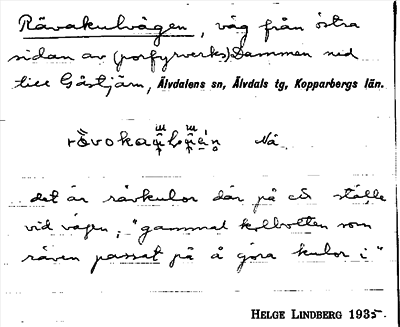 Rävakulvägen, väg från östra
sidan av (porfyrverks)Dammen ned
till Gåstjärn, Älvdalens sn, Älvdals tg, Kopparbergs län.
Nä
det är rävkulor där på ett ställe
vid vägen, "gammal kolbotten som
räven passat på å göra kulor i"
HELGE LINDBERG 1935.